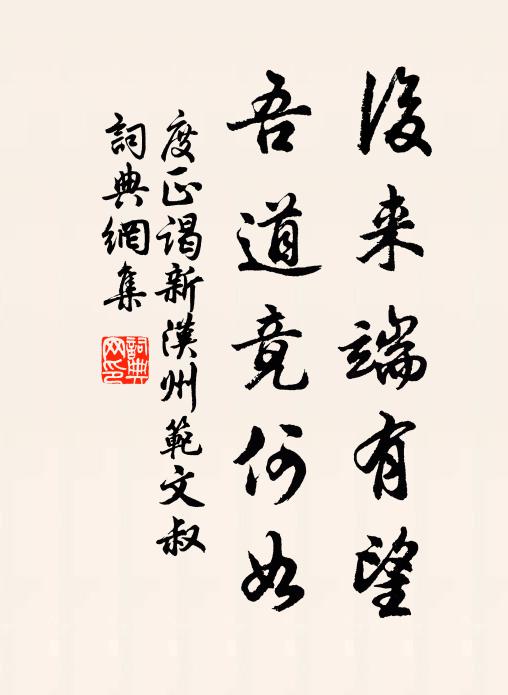 後来端有望
吾道竟何如
度正谒新漢州範文叔
詞典網集
詞典
网印